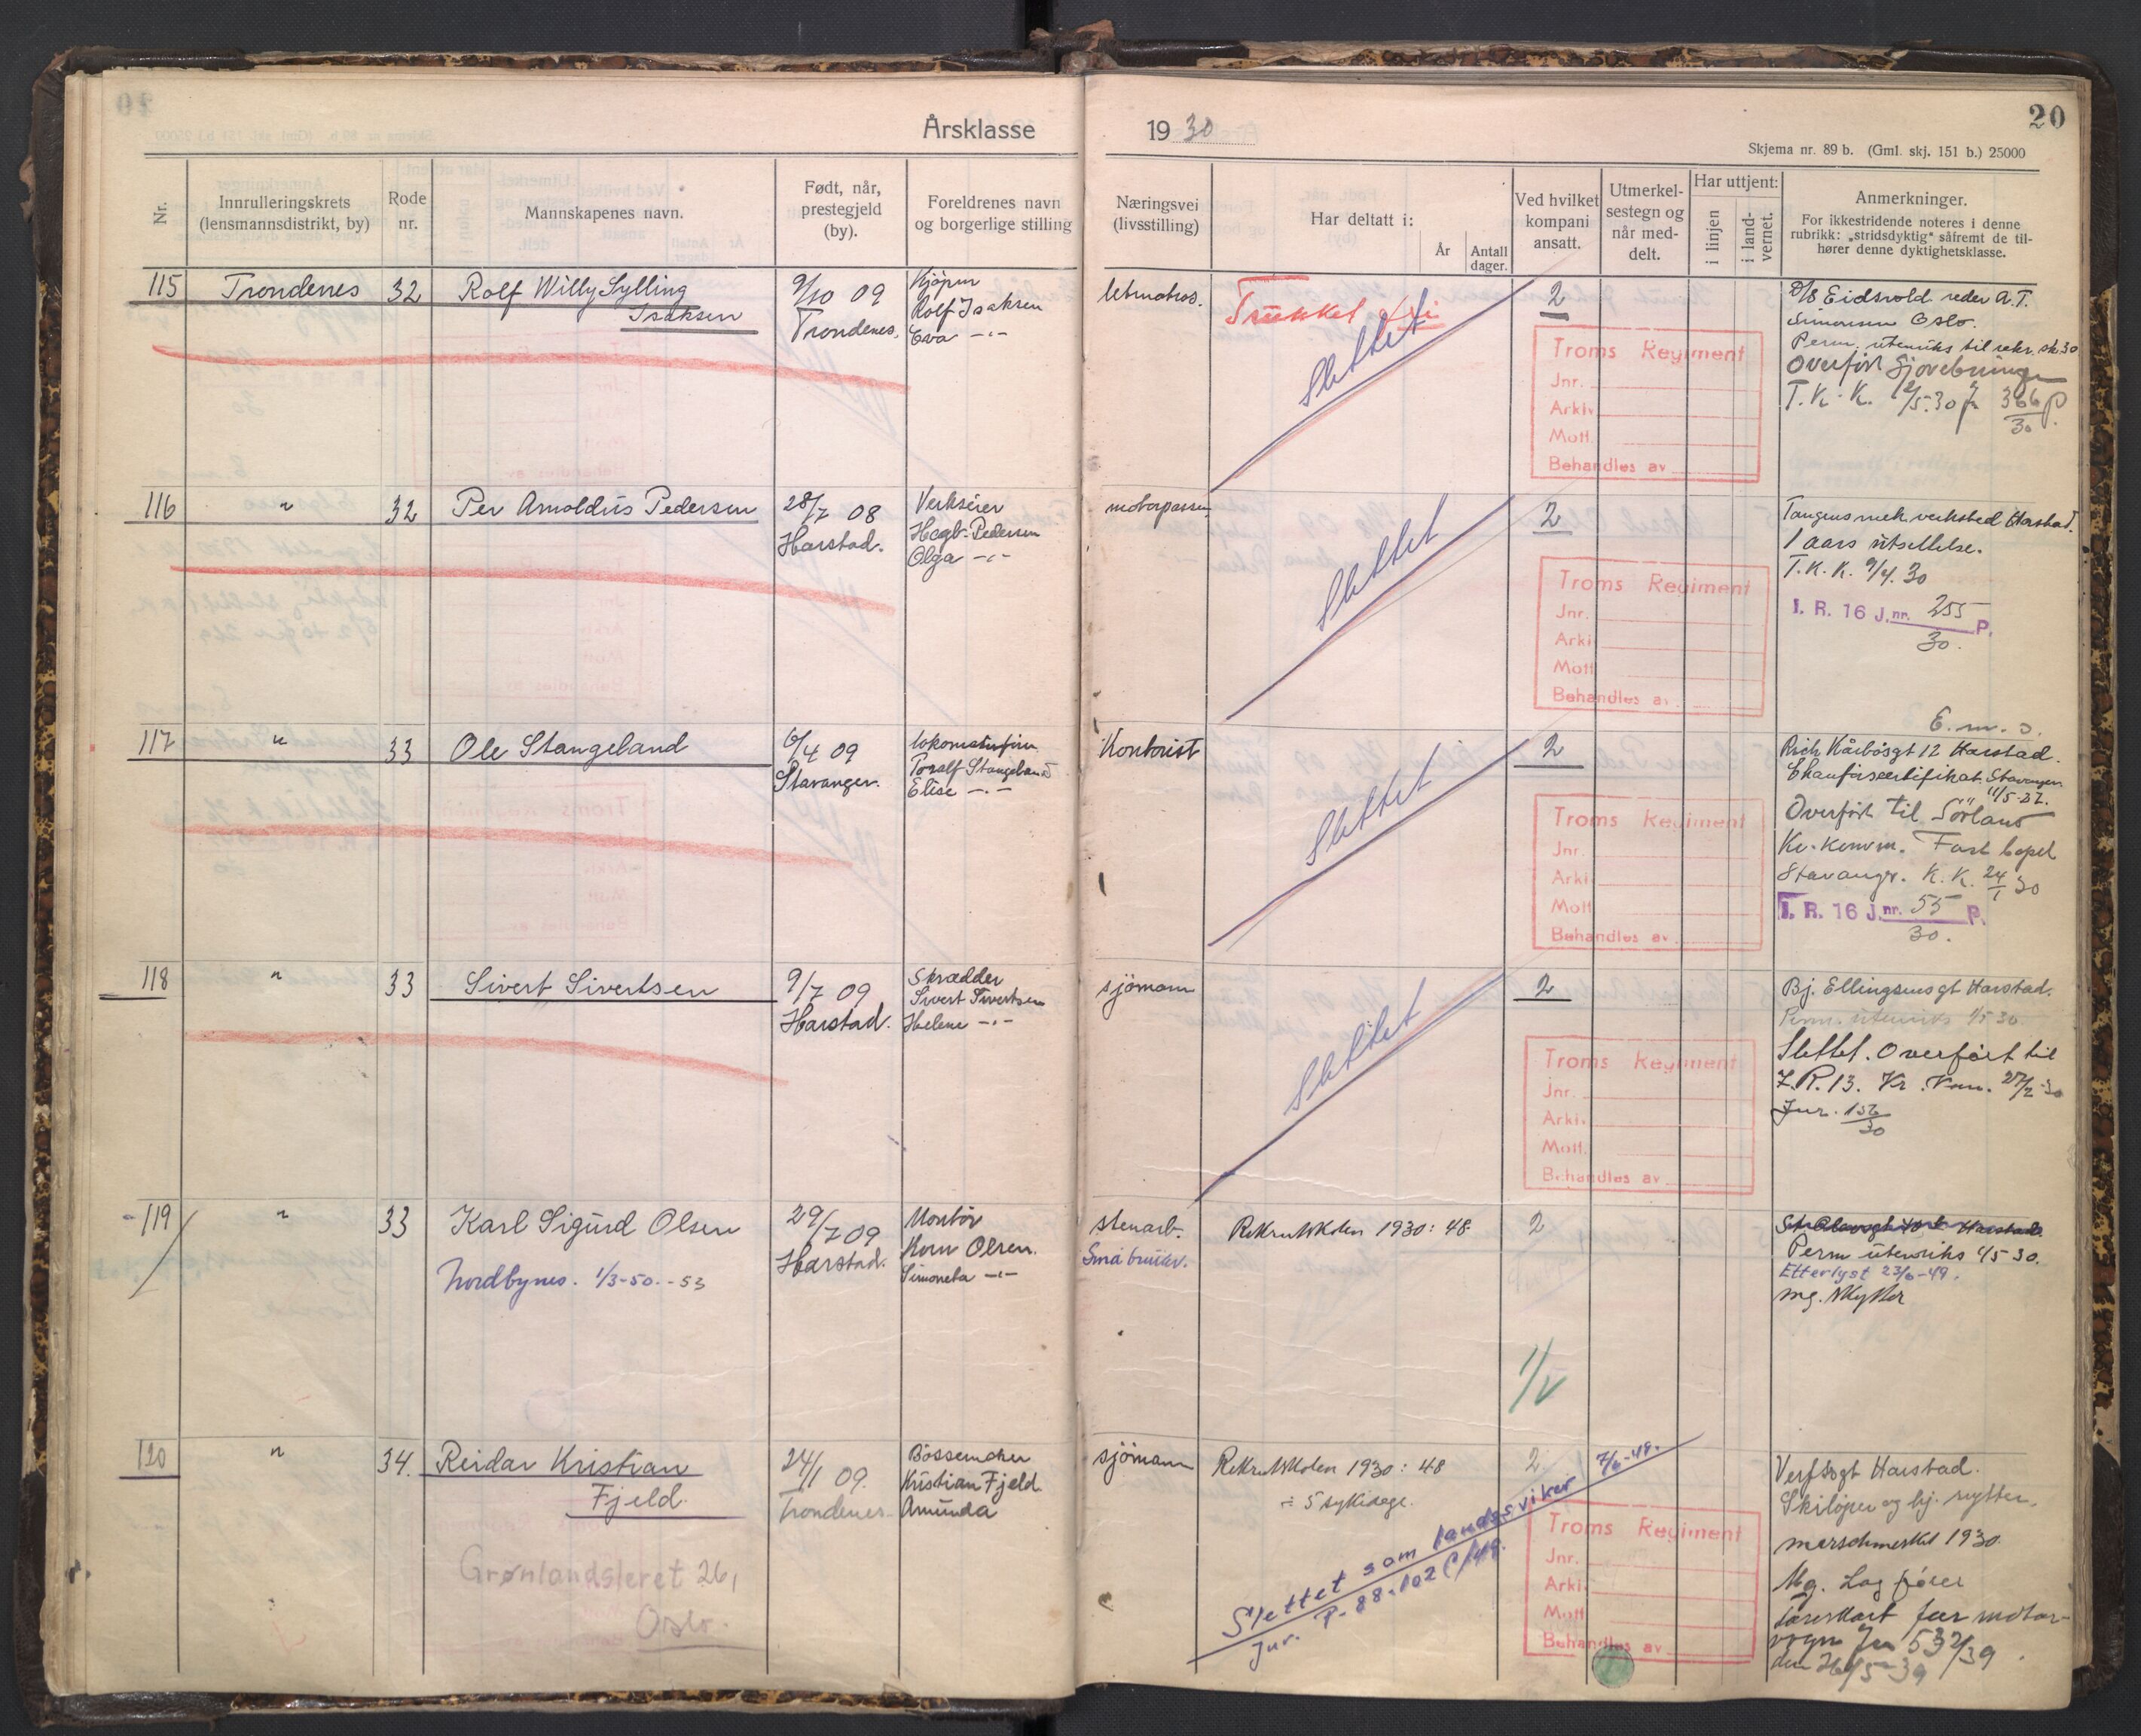 Årsklasse
1930
20
Skjema nr. 89 b. (Gml. skj. 151 b.) 25000
Nr.
Innrulleringskrets
(lensmannsdistrikt, by)
Rode
nr.
Mannskapenes navn.
Født, når,
prestegjeld
(by).
Foreldrenes navn
og borgerlige stilling
Næringsvei
(livsstilling)
Har deltatt i:
År
Antall
dager.
Ved hvilket
kompani
ansatt.
Utmerkel-
sestegn og
når med-
delt.
Har uttjent:
i linjen
i land-
vernet.
Anmerkninger.
For ikkestridende noteres i denne
rubrikk: „stridsdyktig“ såfremt de til-
hører denne dyktighetsklasse.
115 Trondenes 32 Rolf Willy Sylling
Isaksen
9/10 09
Trondenes.
Kjøpm
Rolf Isaksen
Eva -"-
letmatros.
Trukket fri
Slettet
2
D/S Eidsvold reder A.T.
Simonsen Oslo.
Perm. utenriks til rekr. sk. 30
Overført Sjøvebningen
T.K.K. 2/5.30 J. 366 P.
30
Troms Regiment
Jnr.
Arkiv
Mott.
Behandles av
116 " 32 Per Arnoldus Pedersen
28/7 08
Harstad.
Verkseier
Hagb. Pedersen
Olga -"-
motorpasser
Slettet
2
Tangens mek. verksted Harstad.
1 aars utsettelse.
T.K.K. 9/4.30
I. R. 16 J.nr. 255 P.
30.
Troms Regiment
Jnr.
Arki
Mott
Behandles av
117 " 33 Ole Stangeland
6/4 09
Stavanger.
lokomotivfører
Toralf Stangeland
Elise -"-
Kontorist
Slettet
2
E. m. s.
Rich Kårbøsgt 12 Harstad.
Chauførsertifikat Stavanger
11/5-27.
Overført til Sörland
Kr. komm. Fast bopel
Stavanger. K.K. 24/1 30
I. R. 16 J.nr. 55 P.
30.
Troms Regiment
Jnr.
Arki
Mott
Behandles av
118 " 33 Sivert Sivertsen
9/7 09
Harstad.
Skrædder
Sivert Sivertsen
Helene -"-
sjömann
Slettet
2
Bj. Ellingsensgt Harstad.
Perm. utenriks 1/5 30
Slettet. Overført til
I.R. 13. Kr. Kom. 27/2-30
Jnr. 156
30
Troms Regiment
Jnr.
Arkiv.
Mott.
Behandles av
119 " 33 Karl Sigurd Olsen
Nordbynes. 1/3-50.-53
29/7 09
Harstad.
Montör
Korn Olsen.
Simoneta -"-
stenarb.
Småbruker.
Rekruttskolen 1930: 48
2
1/V
Harstad
Perm utenriks 1/5 30.
Etterlyst 23/6-49.
mg. skytter
120 " 34. Reidar Kristian
Fjeld.
Grønlandsleret 26,
Oslo.
24/1 09.
Trondenes.
Bössemaker
Kristian Fjeld
Amunda
sjömann
Rekruttskolen 1930: 48
÷ 5 sykedage.
2.
7/6-49.
Slettet som landssviker
Jnr. P-88-102 C/49.
Verftsgt Harstad.
Skilöper og hj. rytter.
marschmerket 1930.
Mg. Lag fører
førerkort for motor-
vogn Jn 532/39
den 24/5-39
Troms Regiment
Jnr.
Arkiv
Mott
Behandles av